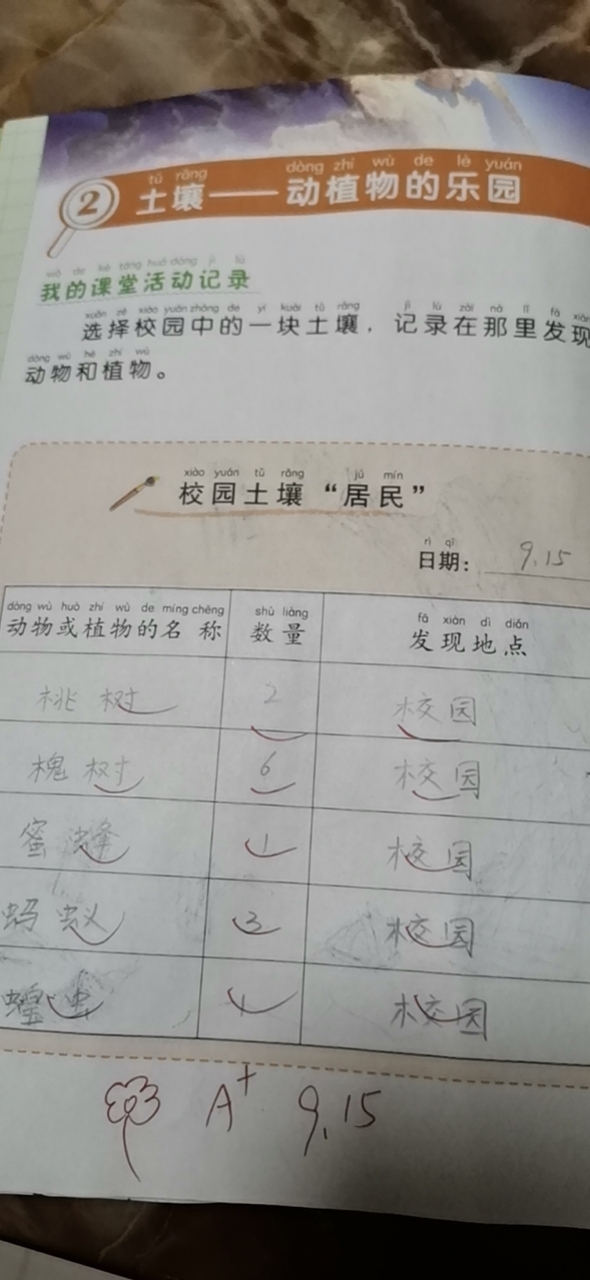 tǔ rǎng dòng zhí wù de lè yuán
2 土壤——动植物的乐园
wǒ de kè táng huó dòng jì lù
我的课堂活动记录
xuǎn zé xiào yuán zhōng de yí kuài tǔ rǎng jì lù zài nà lǐ fā xiàn
选择校园中的一块土壤，记录在那里发现
dòng wù hé zhí wù
动物和植物。
xiào yuán tǔ rǎng jū mín
校园土壤“居民”
rì qī
日期： 9.15
dòng wù huò zhí wù de míng chēng shù liàng fā xiàn dì diǎn
动物或植物的名称 数量 发现地点
桃树 2 校园
槐树 6 校园
蜜蜂 1 校园
蚂蚁 3 校园
蝗虫 1 校园
A+ 9.15